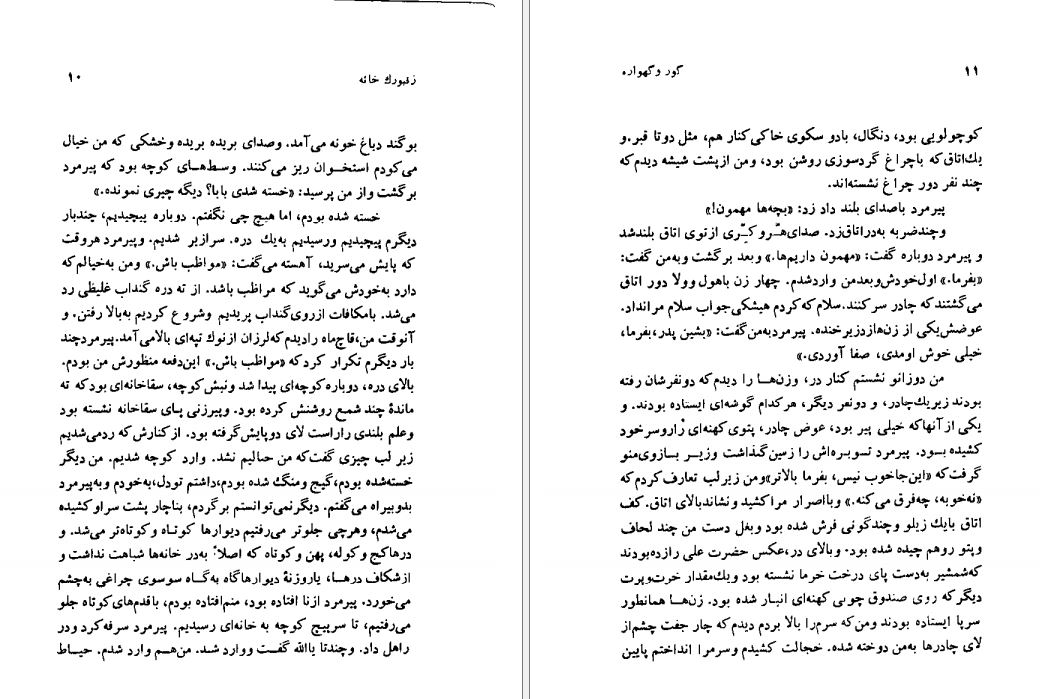 زنبورك خانه
۱۰
بوگند دباغ خونه می‌آمد. وصدای بریده بریده وخشکی که من خیال
می‌کودم استخـوان ریز می‌کنند. وسـط‌هـای کوچه بود که پیرمرد
برگشت واز من پرسید: «خسته شدی بابا؟ دیگه چیزی نمونده.»
خسته شده بودم، اما هیچ چی نگفتم. دوباره پیچیدیم، چندبار
دیگرم پیچیدیم ورسیدیم به‌یك دره. سرازیر شدیم. وپیرمرد هروقت
که پایش می‌سرید، آهسته می‌گفت: «مواظب باش.» ومن به‌خیالم‌که
دارد به‌خودش می‌گوید که مراظب باشد. از ته دره گنداب غلیظی رد
می‌شد. بامکافات ازروی‌گنداب پریدیم وشروع کردیم به‌بالا رفتن. و
آنوقت من،قاچ‌ماه رادیدم‌که‌لرزان ازنوك تپه‌ای بالامی‌آمد.پیرمردچند
بار دیگرم تکرار کردکه «مواظب باش.» این‌دفعه منظورش من بودم.
بالای دره، دوباره‌کوچه‌ای پیدا شد ونبش‌کوچه، سقاخانه‌ای بودکه ته
ماندهٔ چند شمع روشنش کرده بود. وپیرزنی پـای سقاخانه نشسته بود
وعلم بلندی راراست لای دوپایش‌گرفته بود. ازکنارش‌که ردمی‌شدیم
زیر لب چیزی گفت‌که من حـالیم نشد. وارد کوچه شدیم. من دیگر
خسته‌شده بودم،گیج ومنگ شده بودم،داشتم تودل،به‌خودم وبه‌پیرمرد
بدوبیراه می‌گفتم. دیگرنمی‌توانستم برگردم، بناچار پشت سراوکشیده
می‌شدم، وهرچی جلوتر می‌رفتیم دیوارها کوتـاه و کوتاه‌تر می‌شد. و
درهاکج وکوله، پهن وکوتاه که اصلاً به‌در خانه‌ها شباهت نداشت و
ازشکاف درهـا، یاروزنهٔ دیوارهاگاه به‌گـاه سوسوی چراغی به‌چشم
می‌خورد. پیرمرد ازنا افتاده بود، منم‌افتاده بودم، باقدم‌های‌کوتاه جلو
می‌رفتیم، تا سرپیچ کوچه به خانه‌ای رسیدیم. پیرمرد سرفه‌کرد ودر
راهل داد. وچندتا یاالله گفت ووارد شد. من‌هـم وارد شدم. حیـاط
گور وگهواره
۱۱
کوچولویی بود، دنگال، بادو سکوی خاکی‌کنار هم، مثل دوتا قبر.و
یك‌اتاق‌که باچراغ گردسوزی روشن بود، ومن ازپشت شیشه دیدم‌که
چند نفر دور چراغ نشسته‌اند.
پیرمرد باصدای بلند داد زد: «بچه‌ها مهمون!»
وچندضربه به‌دراتاق‌زد. صدای‌هِـّروکِـّری ازتوی اتاق بلندشد
و پیرمرد دوباره گفت: «مهمون داریم‌ها.» وبعد برگشت وبه‌من گفت:
«بفرما.» اول‌خودش‌وبعدمن واردشدم. چهار زن باهول وولا دور اتاق
می‌گشتندکه چادر سرکنند. سلام‌که‌کردم هیشکی‌جواب سلام مرانداد.
عوضش‌یکی از زن‌هازدزیرخنده. پیرمردبه‌من‌گفت: «بشین پدر،بفرما،
خیلی خوش اومدی، صفا آوردی.»
من دوزانو نشستم کنار در، وزن‌هـا را دیدم‌که دونفرشان رفته
بودند زیریك‌چادر، و دونفر دیگر، هرکدام گوشه‌ای ایستاده بودند. و
یکی از آنهاکه خیلی پیر بود، عوض چادر، پتوی کهنه‌ای راروسرخود
کشیده بـود. پیرمرد تـوبـره‌اش را زمین‌گذاشت وزیـر بـازوی‌منو
گرفت‌که «این‌جاخوب نیس، بفرما بالاتر»ومن زیرلب تعارف‌کردم‌که
«نه‌خوبه، چه‌فرق می‌کنه.» وبااصرار مراکشید ونشاندبالای اتاق. کف
اتاق بایك زیلو وچندگونی فرش شده بود وبغل دست من چند لحاف
وپتو روهم چیده شده بود. وبالای در،عکس حضرت علی رازده‌بودند
که‌شمشیر به‌دست پای درخت خرما نشسته بود ویك‌مقدار خرت‌وپرت
دیگرکه روی صندوق چوبی کهنه‌ای انبـار شده بود. زن‌هـا همانطور
سرپا ایستاده بودند ومن‌که سرم‌را بالا بردم دیدم‌که چار جفت چشم‌از
لای چادرها به‌من دوخته شده. خجالت کشیدم وسرمرا انداختم پایین